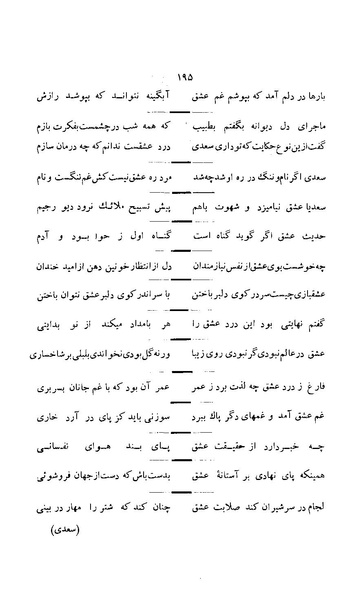 ۱۹۵
بارها در دلم آمد که بپوشم غم عشق آبگینه نتوانـد که بپوشـد رازش
ماجرای دل دیوانه بگفتم بطبیب که همه شب در چشمست بفکرت بازم
گفت از این نوع حکایت که تو داری سعدی درد عشقست ندانم که چه درمان سازم
سعدی اگر نام و ننگ در ره او شد چه شد مرد ره عشق نیست کش غم ننگست و نام
سعدیا عشق نیامیزد و شهوت باهم پیش تسبیح ملائک نرود دیو رجیم
حدیث عشق اگر گوید گناه است گناه اول ز حوا بود و آدم
چه خوشست بوی عشق از نفس نیازمندان دل از انتظار خونین دهن از امید خندان
عشقبازی چیست سر در کوی دلبر باختن با سر اندر کوی دلبر عشق نتوان باختن
گفتم نهایتی بود این درد عشق را هر بامداد میکند از نو بدایتی
عشق در عالم نبودی گر نبودی روی زیبا ورنه گل بودی نخواندی بلبلی بر شاخساری
فارغ ز درد عشق چه لذت برد ز عمر عمر آن بود که با غم جانان بسر بری
غم عشق آمد و غمهای دگر پاك ببرد سوزنی باید کز پای در آرد خاری
چه خبر دارد از حقیقت عشق پای بند هوای نفسانی
همینکه پای نهادی بر آستانهٔ عشق بدست باش که دست از جهان فروشوئی
لجام در سر شیران کند صلابت عشق چنان کند که شتر را مهار در بینی
(سعدی)